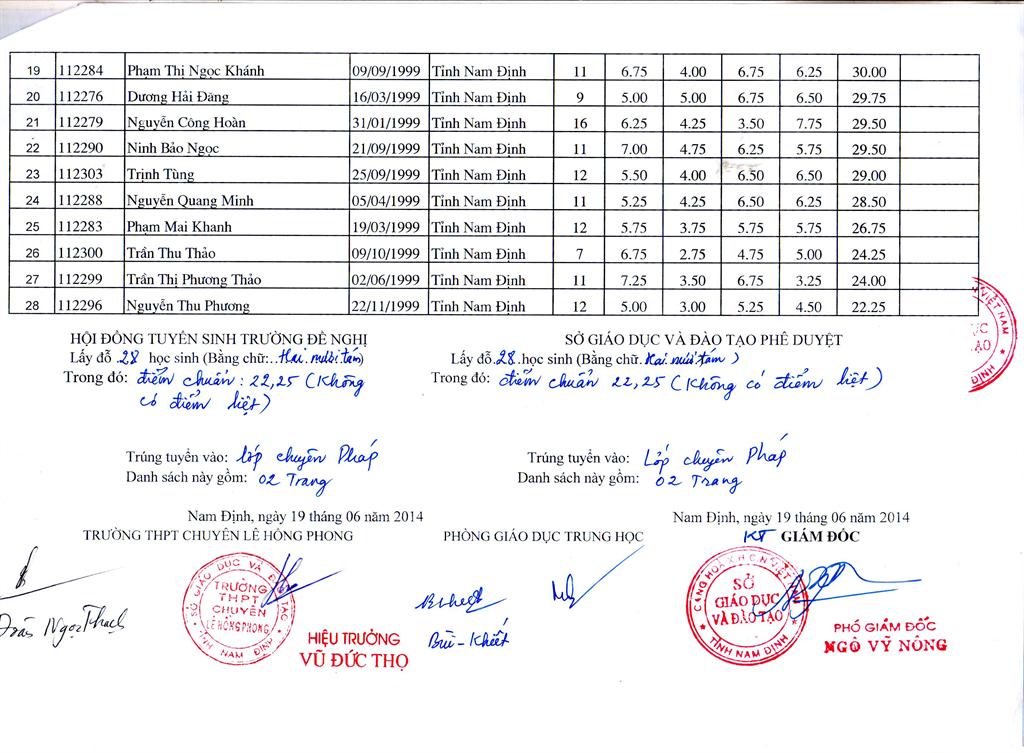 19 112284 Phạm Thị Ngọc Khánh 09/09/1999 Tỉnh Nam Định 11 6.75 4.00 6.75 6.25 30.00
20 112276 Dương Hải Đăng 16/03/1999 Tỉnh Nam Định 9 5.00 5.00 6.75 6.50 29.75
21 112279 Nguyễn Công Hoàn 31/01/1999 Tỉnh Nam Định 16 6.25 4.25 3.50 7.75 29.50
22 112290 Ninh Bảo Ngọc 21/09/1999 Tỉnh Nam Định 11 7.00 4.75 6.25 5.75 29.50
23 112303 Trịnh Tùng 25/09/1999 Tỉnh Nam Định 12 5.50 4.00 6.50 6.50 29.00
24 112288 Nguyễn Quang Minh 05/04/1999 Tỉnh Nam Định 11 5.25 4.25 6.50 6.25 28.50
25 112283 Phạm Mai Khanh 19/03/1999 Tỉnh Nam Định 12 5.75 3.75 5.75 5.75 26.75
26 112300 Trần Thu Thảo 09/10/1999 Tỉnh Nam Định 7 6.75 2.75 4.75 5.00 24.25
27 112299 Trần Thị Phương Thảo 02/06/1999 Tỉnh Nam Định 11 7.25 3.50 6.75 3.25 24.00
28 112296 Nguyễn Thu Phương 22/11/1999 Tỉnh Nam Định 12 5.00 3.00 5.25 4.50 22.25
HỘI ĐỒNG TUYỂN SINH TRƯỜNG ĐỀ NGHỊ
Lấy đỗ 28 học sinh (Bằng chữ: Hai mươi tám)
Trong đó: điểm chuẩn: 22,25 (Không
có điểm liệt)
Trúng tuyển vào: lớp chuyên Pháp
Danh sách này gồm: 02 Trang
SỞ GIÁO DỤC VÀ ĐÀO TẠO PHÊ DUYỆT
Lấy đỗ 28 học sinh (Bằng chữ. Hai mươi tám)
Trong đó: điểm chuẩn 22,25 (Không có điểm liệt)
Trúng tuyển vào: Lớp chuyên Pháp
Danh sách này gồm: 02 Trang
Nam Định, ngày 19 tháng 06 năm 2014
TRƯỜNG THPT CHUYÊN LÊ HỒNG PHONG
PHÒNG GIÁO DỤC TRUNG HỌC
Nam Định, ngày 19 tháng 06 năm 2014
KT GIÁM ĐỐC
SỞ GIÁO DỤC VÀ ĐÀO TẠO
TRƯỜNG
THPT
CHUYÊN
LÊ HỒNG PHONG
TỈNH NAM ĐỊNH
HIỆU TRƯỞNG
VŨ ĐỨC THỌ
Trần Ngọc Thạch
Bùi - Khiết
CỘNG HOÀ X.H.C.N VIỆT NAM
SỞ
GIÁO DỤC
VÀ ĐÀO TẠO
TỈNH NAM ĐỊNH
PHÓ GIÁM ĐỐC
NGÔ VỸ NÔNG